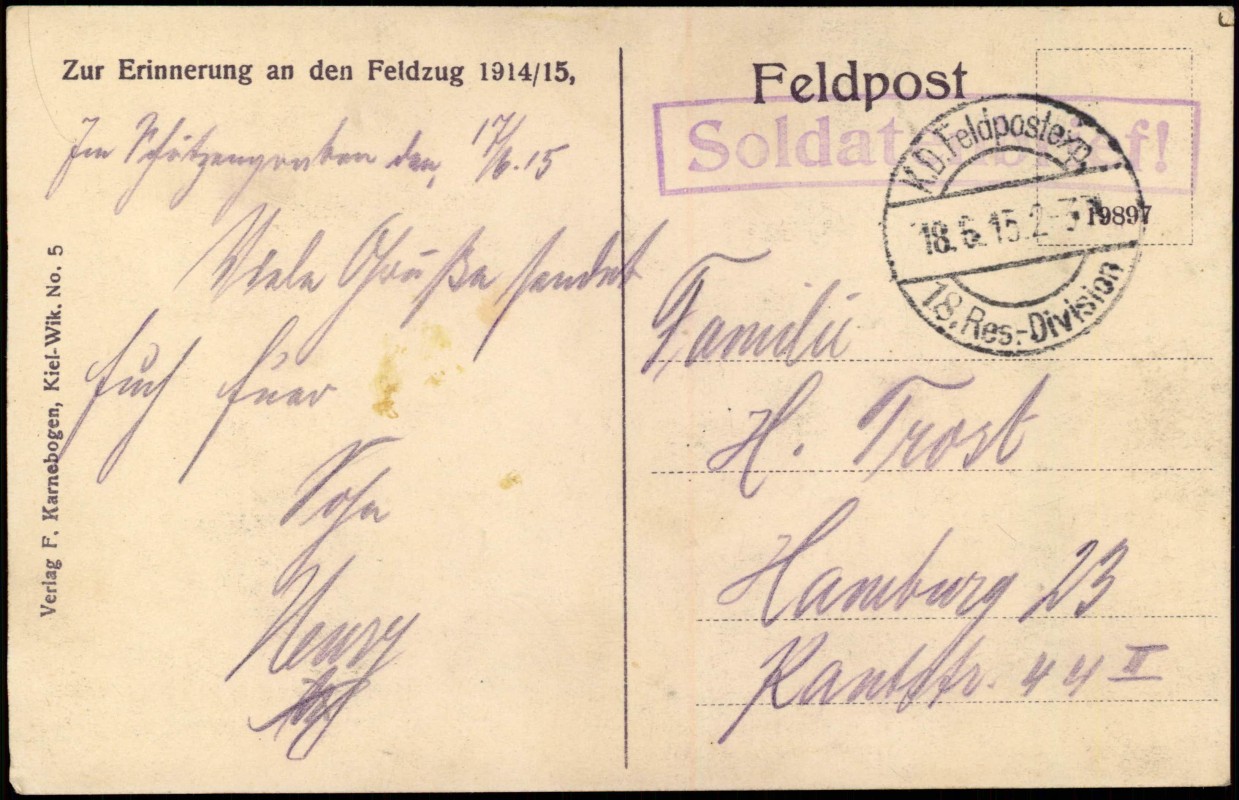 Zur Erinnerung an den Feldzug 1914/15,
Im Schützengraben den, 17/6.15
Viele Grüße sendet
Euch Euer
Sohn
Henry
Verlag F. Karnebogen, Kiel-Wik. No. 5
Feldpost
Soldatenbrief!
K.D.Feldpostexp.
18.6.15.2-3
18.Res.-Division
19897
Familie
H. Trost
Hamburg 23
Kantstr. 44 II